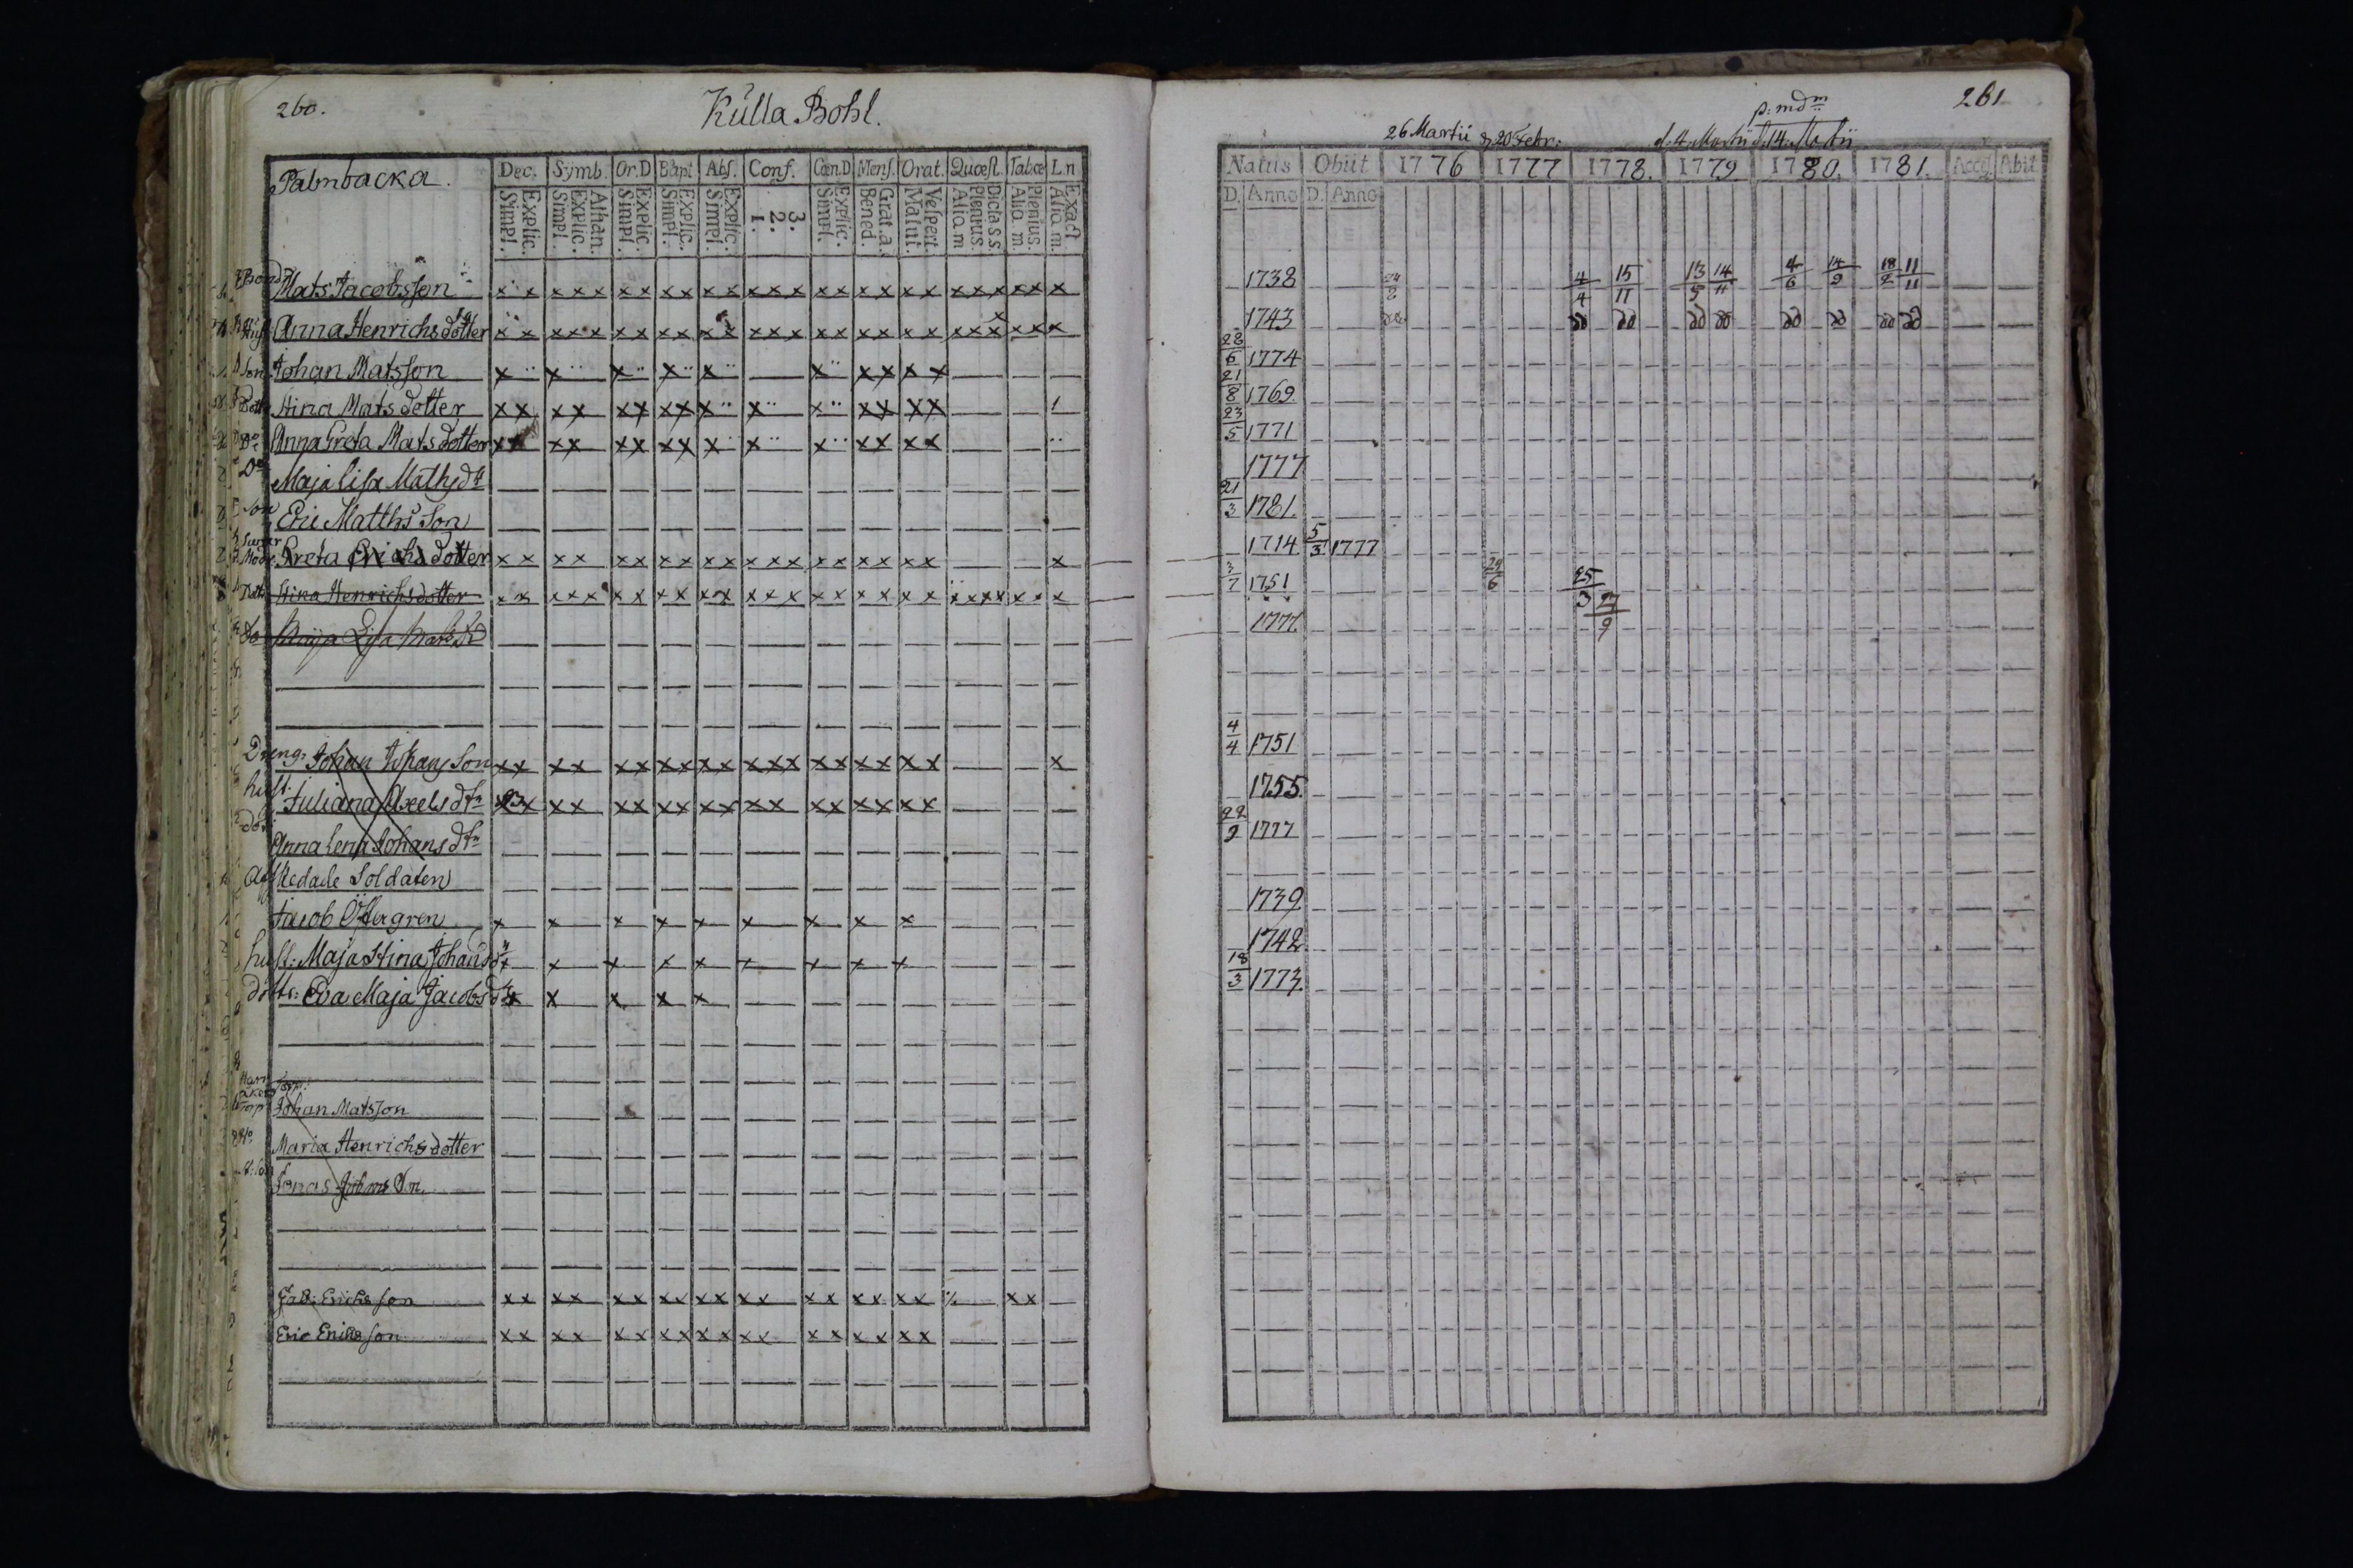 260.
Külla Bohl.
Palmbacka.
Dec. Symb. Or.D Bapt Abs. Conf. Cœn.D Mens. Orat. Quœst. Tabœ L.n
Explic. Simpl. Athan. Explic. Simpl. Explic. Simpl. Explic. Simpl. Explic. Simpl. 3. 2. 1. Explic. Simpl. Grat. a. Bened. Vespert. Matut. Dicta s.s. Plenius. Aliq. m Plenius. Aliq. m. Exact Aliq. m.
Bond Mats Jacobsson x x x x x x x x x x x x x x x x x x x x x x x x x x x
Hust Anna Henrichsdotter x x x x x x x x x x x x x x x x x x x x x x x x x x x
Son Johan Matsson x x x x x x x x x x
Dott Stina Mats dotter x x x x x x x x x x x x x x x
Do Anna Greta Mats dotter x x x x x x x x x x x x x x x
Do Maja Lisa Maths dr
Son Eric Matths Son
Swär Modr Greta Erichs dotter x x x x x x x x x x x x x x x x x x x x
Stina Henrichsdotter x x x x x x x x x x x x x x x x x x x x x x x x x x x x
Do Maija Lisa
Dreng: Johan Johans Son x x x x x x x x x x x x x x x x x x x x
hust. Juliana Axels dtr x x x x x x x x x x x x x x x x x x
dot Anna Lena Johans dtr
Afskedade Soldaten
Jacob Östergren x x x x x x x x x
hust: Maja Stina Johans dr x x x x x x x x x
dottr: Eva Maja Jacobs dr x x x x x
Torp:
Johan Matsson
Maria Henrichsdotter
Jonas
Erichsson x x x x x x x x x x x x x x x x x x % x x
Eric Ericsson x x x x x x x x x x x x x x x x x x
261
p: mdm
26 Martii d 20 Febr: d. 4. Martii d 14. Martii
Natus Obiit 1776 1777 1778. 1779 1780. 1781. Acceſ. Abit
D. Anno D. Anno
1738 24/2 4/4 15/11 13/5 14/11 4/6 14/9 18/2 11/11
1743 do do do do do do do do do
28/6 1774
21/8 1769
23/5 1771
1777
21/3 1781.
1714 5/3 1777
3/7 1751 29/6 25/3
1777 27/9
4/4 1751
1755.
22/9 1777
1739
1742
18/3 1773